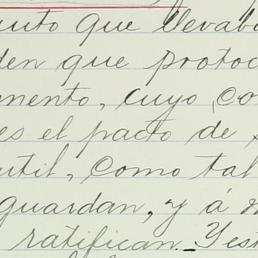 unto que llevab
den que protoc
mento, cuyo, co
es el pacto de
util, como tal
guardan, y á
ratifican._ Y est